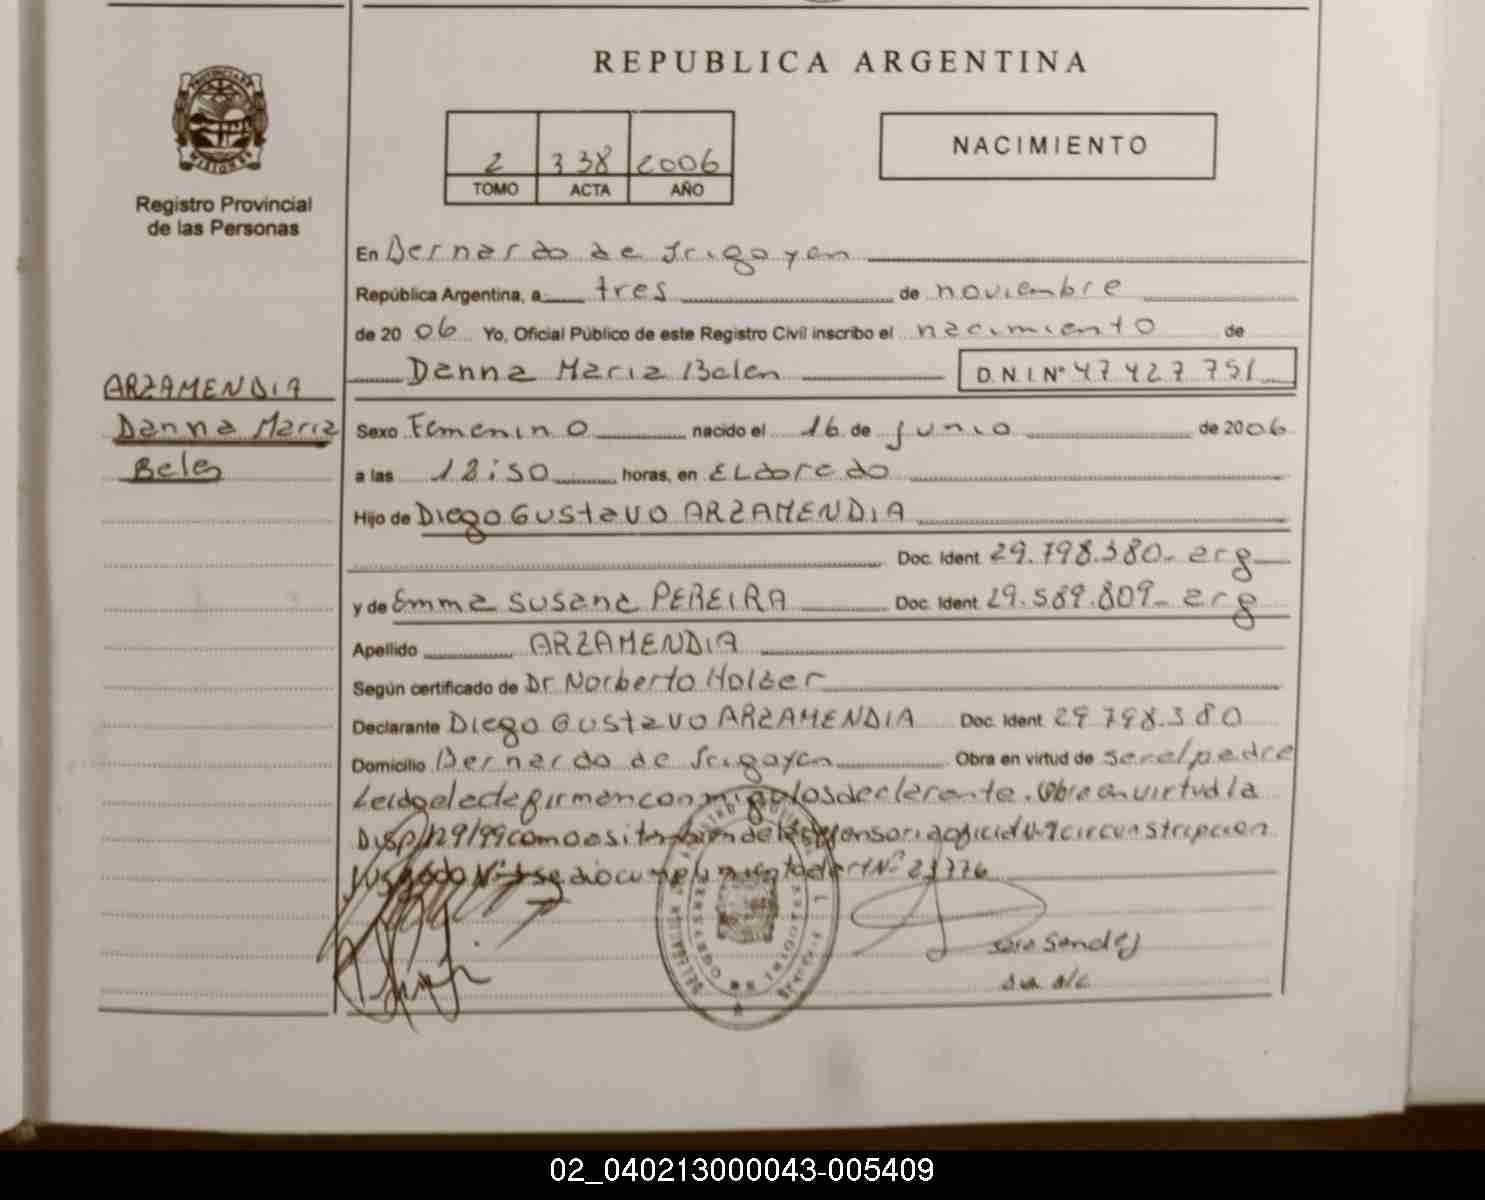 REPUBLICA ARGENTINA
PROVINCIA DE MISIONES
Registro Provincial
de las Personas
2 338 2006
TOMO ACTA AÑO
NACIMIENTO
En Bernardo de Irigoyen
República Argentina, a tres de noviembre
de 20 06 Yo, Oficial Público de este Registro Civil inscribo el nacimiento de
Danna Maria Belen D.N.I. N° 47 427 751
ARZAMENDIA
Danna Maria
Belen
Sexo Femenino nacido el 16 de junio de 2006
a las 12:50 horas, en ELdorado
Hijo de Diego Gustavo ARZAMENDIA
Doc. Ident. 29.798.380- arg
y de Emma Susana PEREIRA Doc. Ident. 29.589.809- arg
Apellido ARZAMENDIA
Según certificado de Dr Norberto Holzer
Declarante Diego Gustavo ARZAMENDIA Doc. Ident. 29 798.380
Domicilio Bernardo de Irigoyen Obra en virtud de ser el padre
Leida el acta firman conmigo los declarante. Obra en virtud la
Disp 129/99 como asi tambien de la defensoria oficial circunstripcion
Juzgado se dio cumplimiento al art N°
02_040213000043-005409